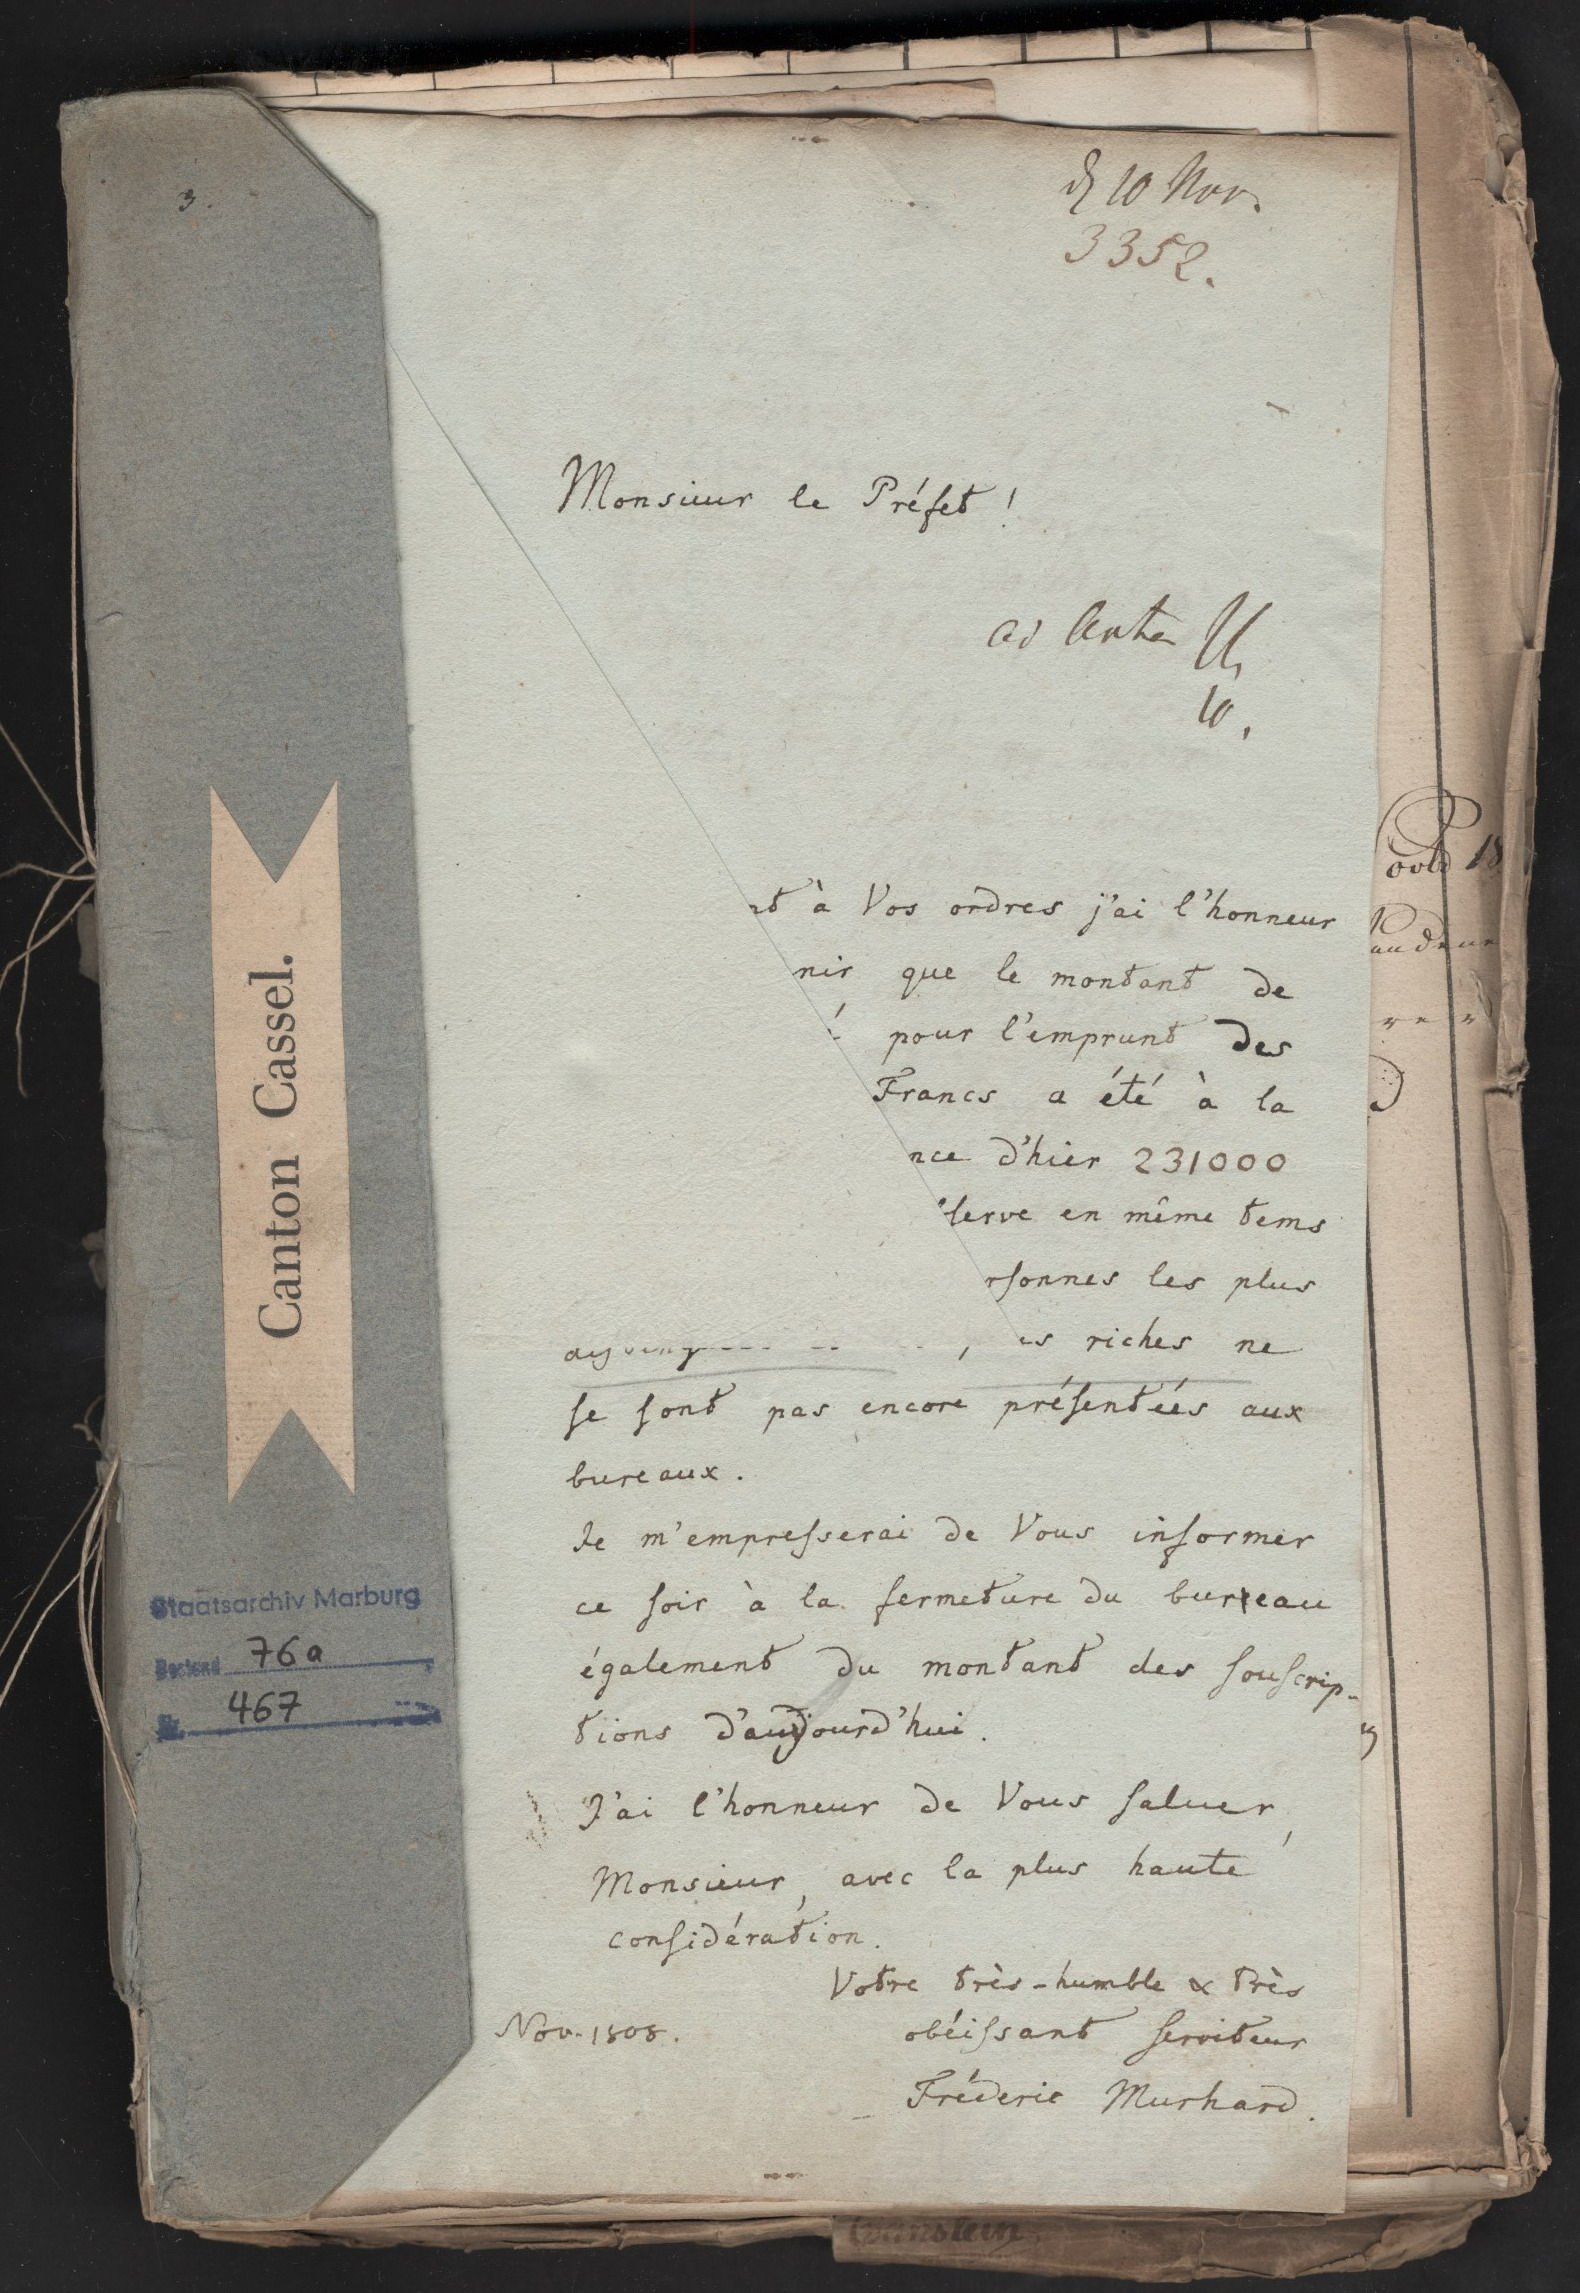 3.
10 Nov.
3352.
Monsieur le Préfet!
ad
10.
nt à Vos ordres j'ai l'honneur
nir que le montant de
pour l'emprunt des
Francs a été à la
nce d'hier 231000
serve en même tems
rsonnes les plus
es riches ne
se sont pas encore présentées aux
bureaux.
Je m'empresserai de Vous informer
ce soir à la fermeture du bureau
également du montant des souscrip-
tions d'aujourd'hui.
J'ai l'honneur de Vous saluer,
Monsieur, avec la plus haute
considération.
Votre très-humble & très
obéissant serviteur
Fréderic Murhard.
Nov. 1808.
Canton Cassel.
Staatsarchiv Marburg
Bestand 76a
Nr. 467